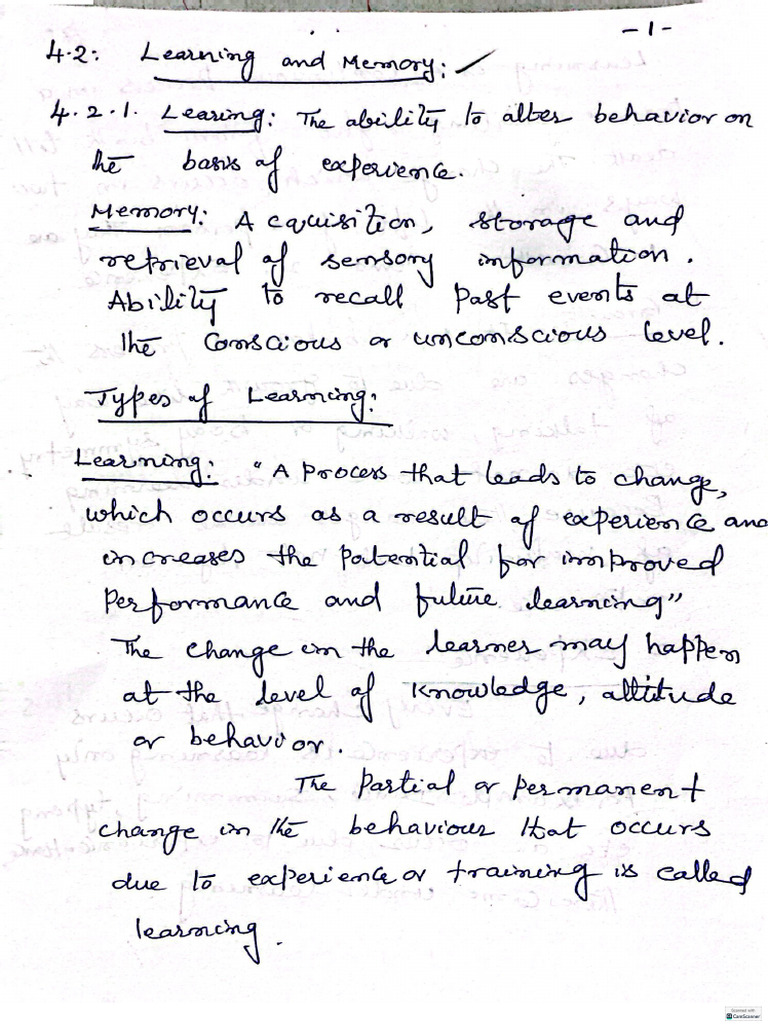 -1-
4.2: Learning and Memory:
4.2.1. Learing: The ability to alter behavior on
the basis of experience.
Memory: Acquisition, storage and
retrieval of sensory information.
Ability to recall past events at
the conscious or unconscious level.
Types of Learning:
Learning: "A process that leads to change,
which occurs as a result of experience and
increases the potential for improved
performance and future learning"
The change in the learner may happen
at the level of knowledge, attitude
or behavior.
The partial or permanent
change in the behaviour that occurs
due to experience or training is called
learning.
Scanned with
CamScanner